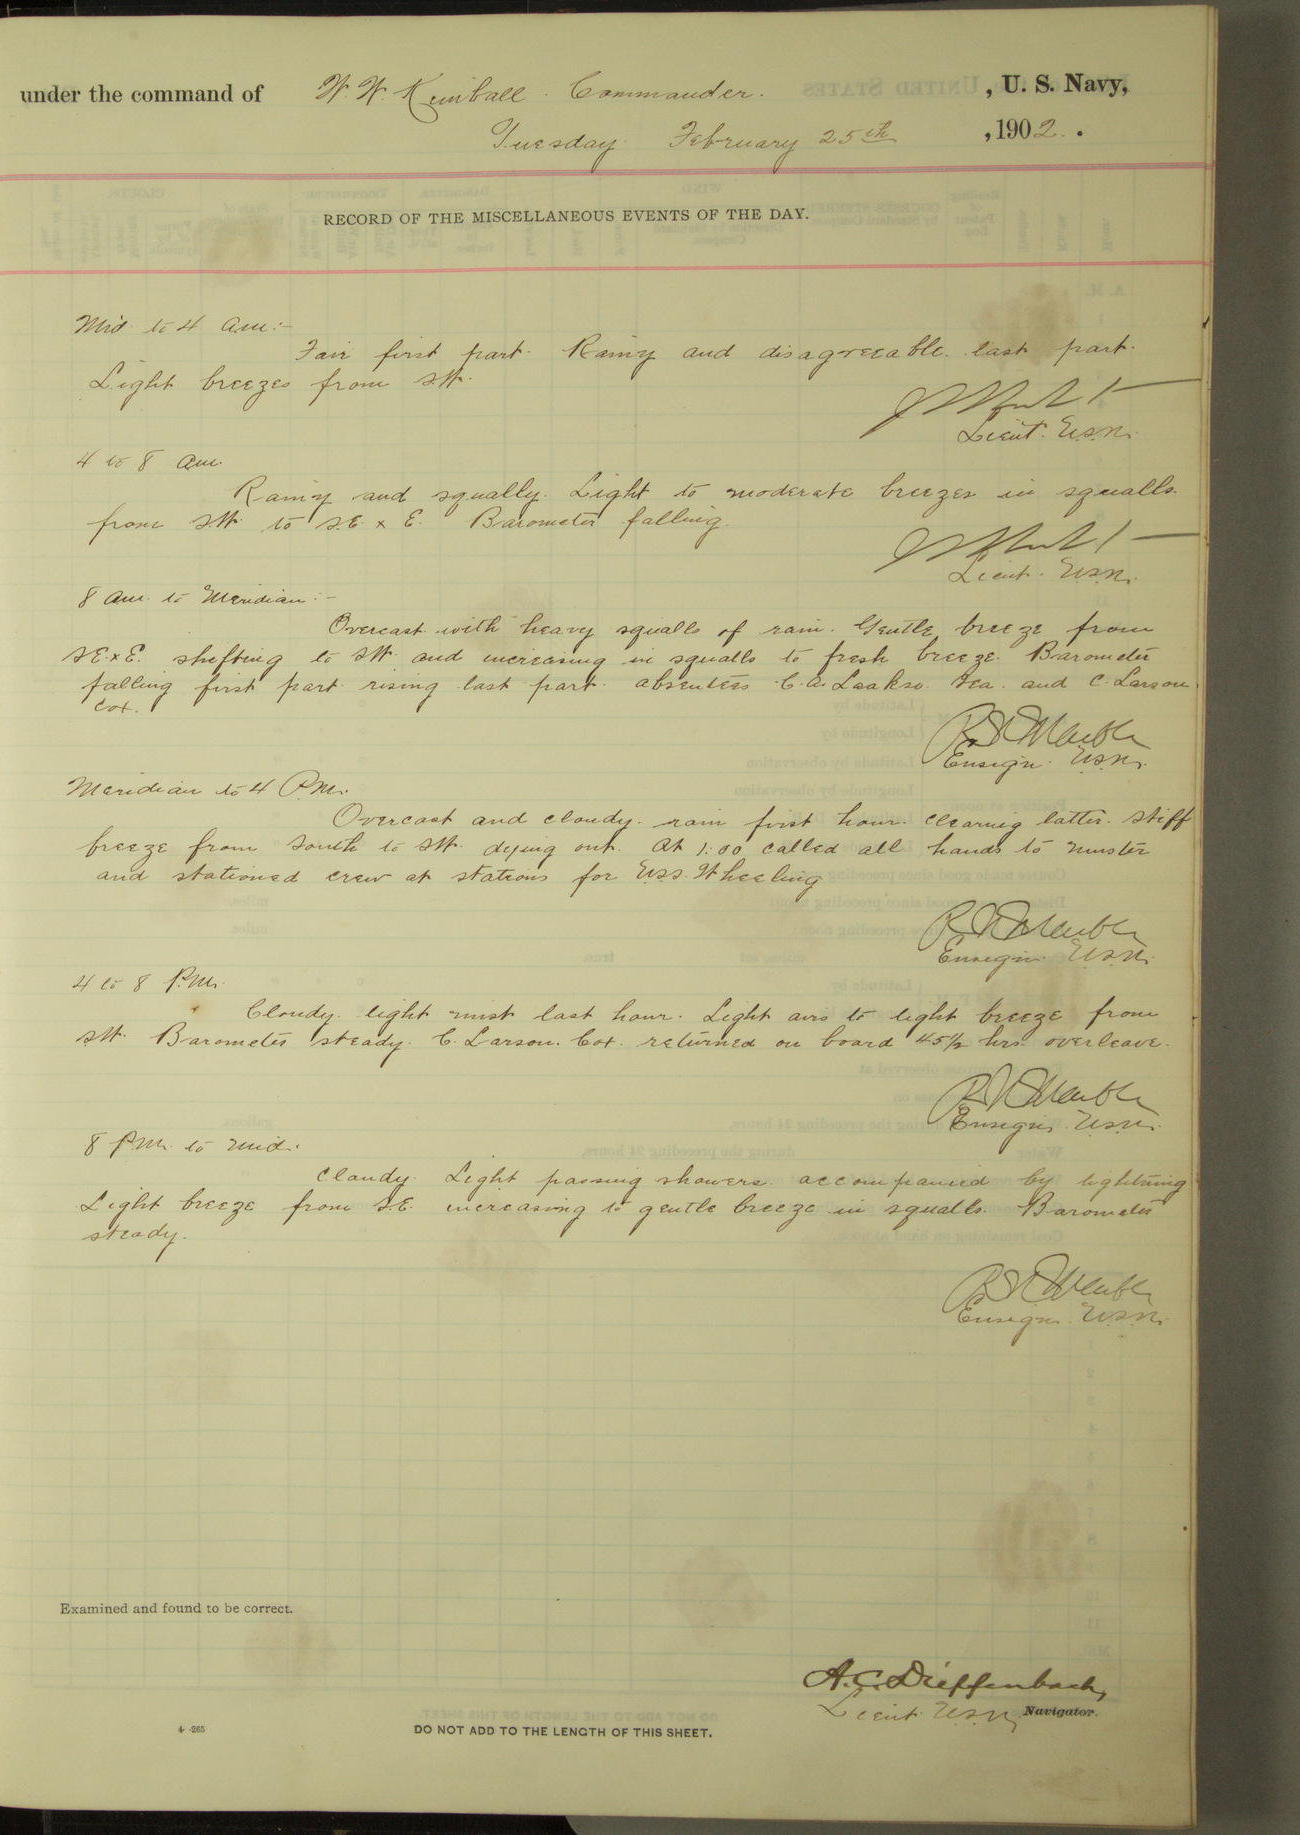 under the command of W. W. Kimball. Commander. , U. S. Navy,
Tuesday February 25th , 1902.
RECORD OF THE MISCELLANEOUS EVENTS OF THE DAY.
Mid to 4 am:-
Fair first part. Rainy and disagreeable last part.
Light breezes from SW.
Lieut. U.S.N.
4 to 8 am.
Rainy and squally. Light to moderate breezes in squalls
from SW. to S.E. x E. Barometer falling.
Lieut. U.S.N.
8 am. to Meridian:-
Overcast with heavy squalls of rain. Gentle breeze from
S.E. x E. shefting to SW. and increasing in squalls to fresh breeze. Barometer
falling first part rising last part. absentees C. A. Laakso. Sea. and C. Larson
Cox.
Ensign. U.S.N.
Meridian to 4 P.M.
Overcast and cloudy. rain first hour. clearing latter. Stiff
breeze from South to SW. dying out. At 1:00 called all hands to muster
and stationed crew at stations for U.S.S. Wheeling
Ensign U.S.N.
4 to 8 P.M.
Cloudy. light mist last hour. Light airs to light breeze from
SW. Barometer steady. C. Larson. Cox. returned on board 45½ hrs. overleave.
Ensign U.S.N.
8 P.M. to mid.
Cloudy. Light passing showers. accompanied by lightning
Light breeze from S.E. increasing to gentle breeze in squalls. Barometer
steady.
Ensign U.S.N.
Examined and found to be correct.
A. C. Dieffenbach,
Lieut. U.S.N. Navigator.
4-265
DO NOT ADD TO THE LENGTH OF THIS SHEET.